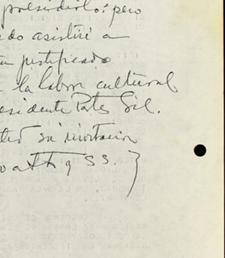 presidirlo: pero
do asistiré a
justificado
la labor cultural
esidente Portes Gil.
ted su invitación